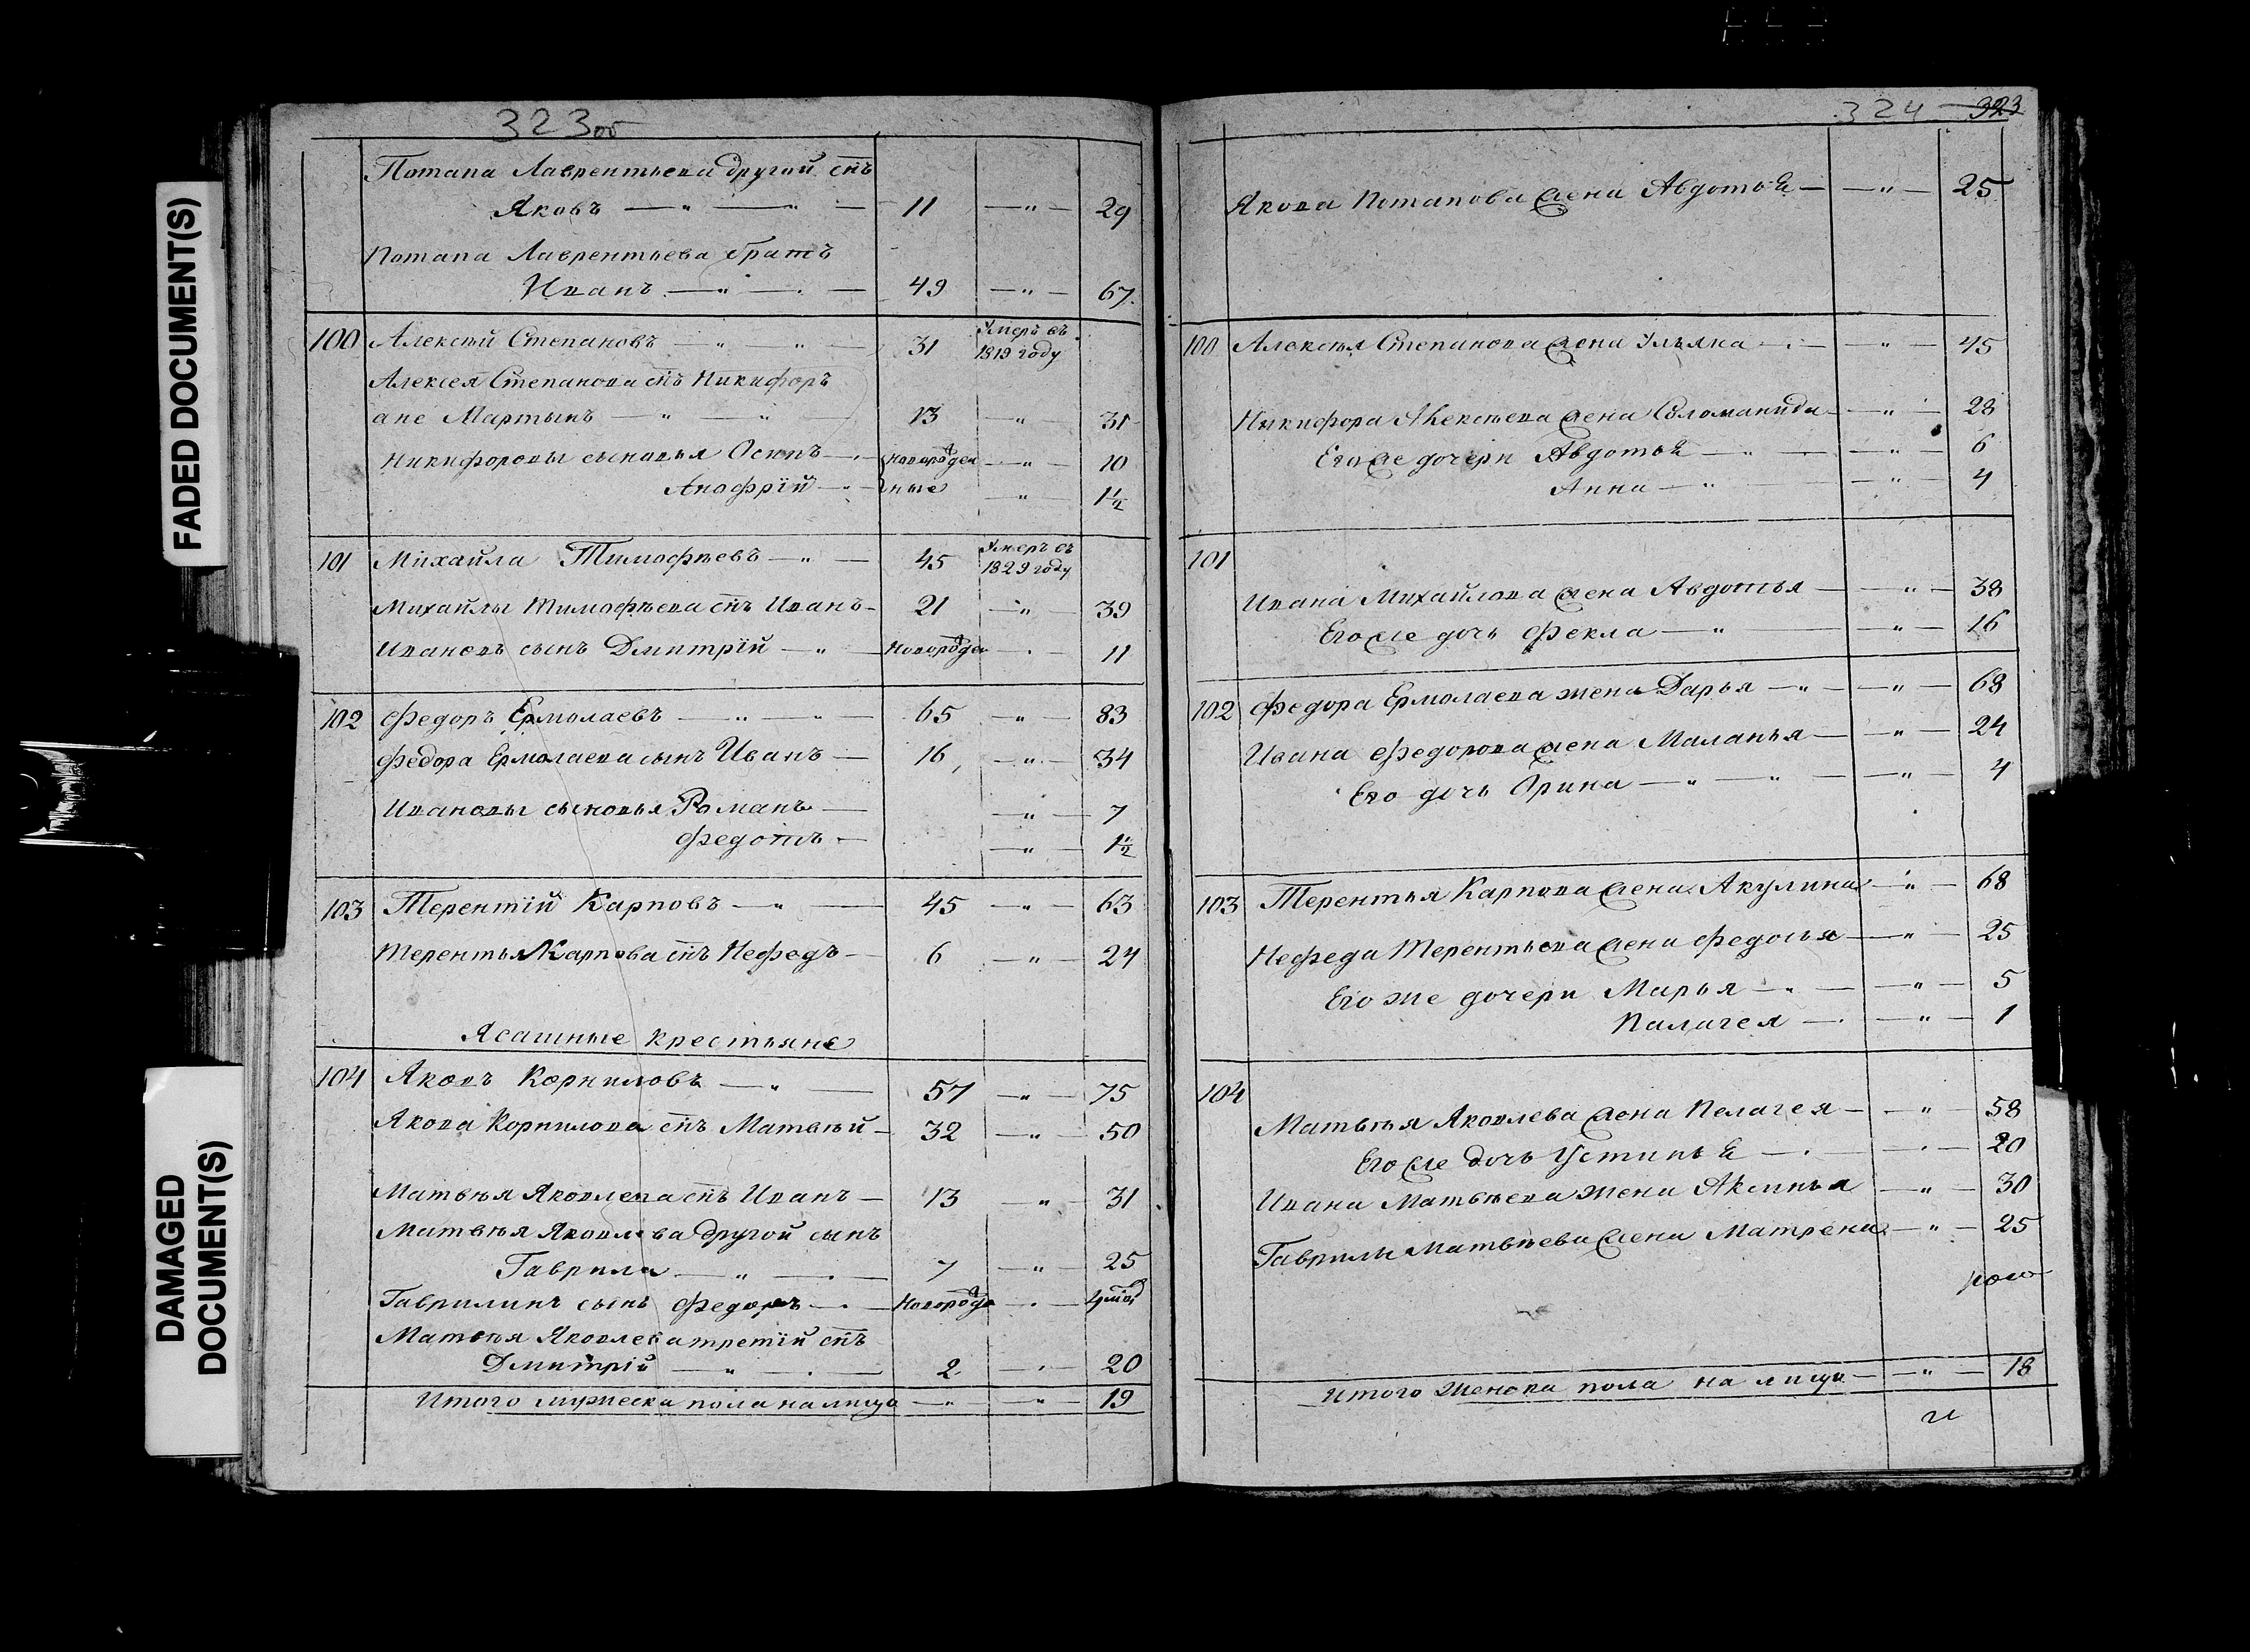 FADED DOCUMENT(S)
DAMAGED
DOCUMENT(S)
323 об
Потапа Лаврентьева другой снъ
Яковъ — " — " — 11 — " — 29
Потапа Лаврентьева братъ
Иванъ — " — 49 — " — 67.
100 Алексѣй Степановъ — " — " — 31 Умеръ въ 1819 году
Алексея Степанова снъ Никифоръ
ане Мартынъ — " — " — 13 — " — 31
Никифоровы сыновья Осипъ — новорожден — " — 10
Анофрій — ные — " — 1½
101 Михайла Тимофѣевъ — " — 45 Умеръ въ 1829 году
Михайлы Тимофѣева снъ Иванъ — 21 — " — 39
Ивановъ сынъ Дмитрій — " — Новорожден — 11
102 Федоръ Ермолаевъ — " — " — 65 — " — 83
Федора Ермолаева сынъ Иванъ — 16 — " — 34
Ивановы сыновья Романъ — " — 7
Федотъ — " — 1½
103 Терентій Карповъ — " — 45 — " — 63
Терентья Карпова снъ Нефедъ — 6 — " — 24
Ясашные крестьяне
104 Яковъ Корниловъ — " — 57 — " — 75
Якова Корнилова снъ Матвѣй — 32 — " — 50
Матвѣя Яковлева снъ Иванъ — 13 — " — 31
Матвѣя Яковлева другой сынъ
Гаврила — " — 7 — " — 25
Гаврилинъ сынъ Федоръ — Новорожде — 4 мцд
Матвѣя Яковлева третій снъ
Дмитрій — " — 2 — 20
Итого мужеска пола на лицо — " — " — 19
324 323
Якова Потапова жена Авдотья — " — 25
100 Алексѣя Степанова жена Ульяна — " — 45
Никифора Алексѣева жена Соломанида — " — 28
Его же дочери Авдотья — " — " — 6
Анна — " — " — 4
101
Ивана Михайлова жена Авдотья — " — 38
Его же дочь Фекла — " — " — 16
102 Федора Ермолаева жена Дарья — " — " — 68
Ивана Федорова жена Маланья — " — 24
Его дочь Орина — " — " — " — 4
103 Терентья Карпова жена Акулина — " — 68
Нефеда Терентьева жена Федосья — " — 25
Его же дочери Марья — " — " — 5
Палагея — " — 1
104
Матвѣя Яковлева жена Пелагея — " — 58
Его же дочь Устинья — 20
Ивана Матвѣева жена Аксинья — " — 30
Гаврилы Матвѣева жена Матрена — " — 25
Итого женска пола на лицо — " — 18